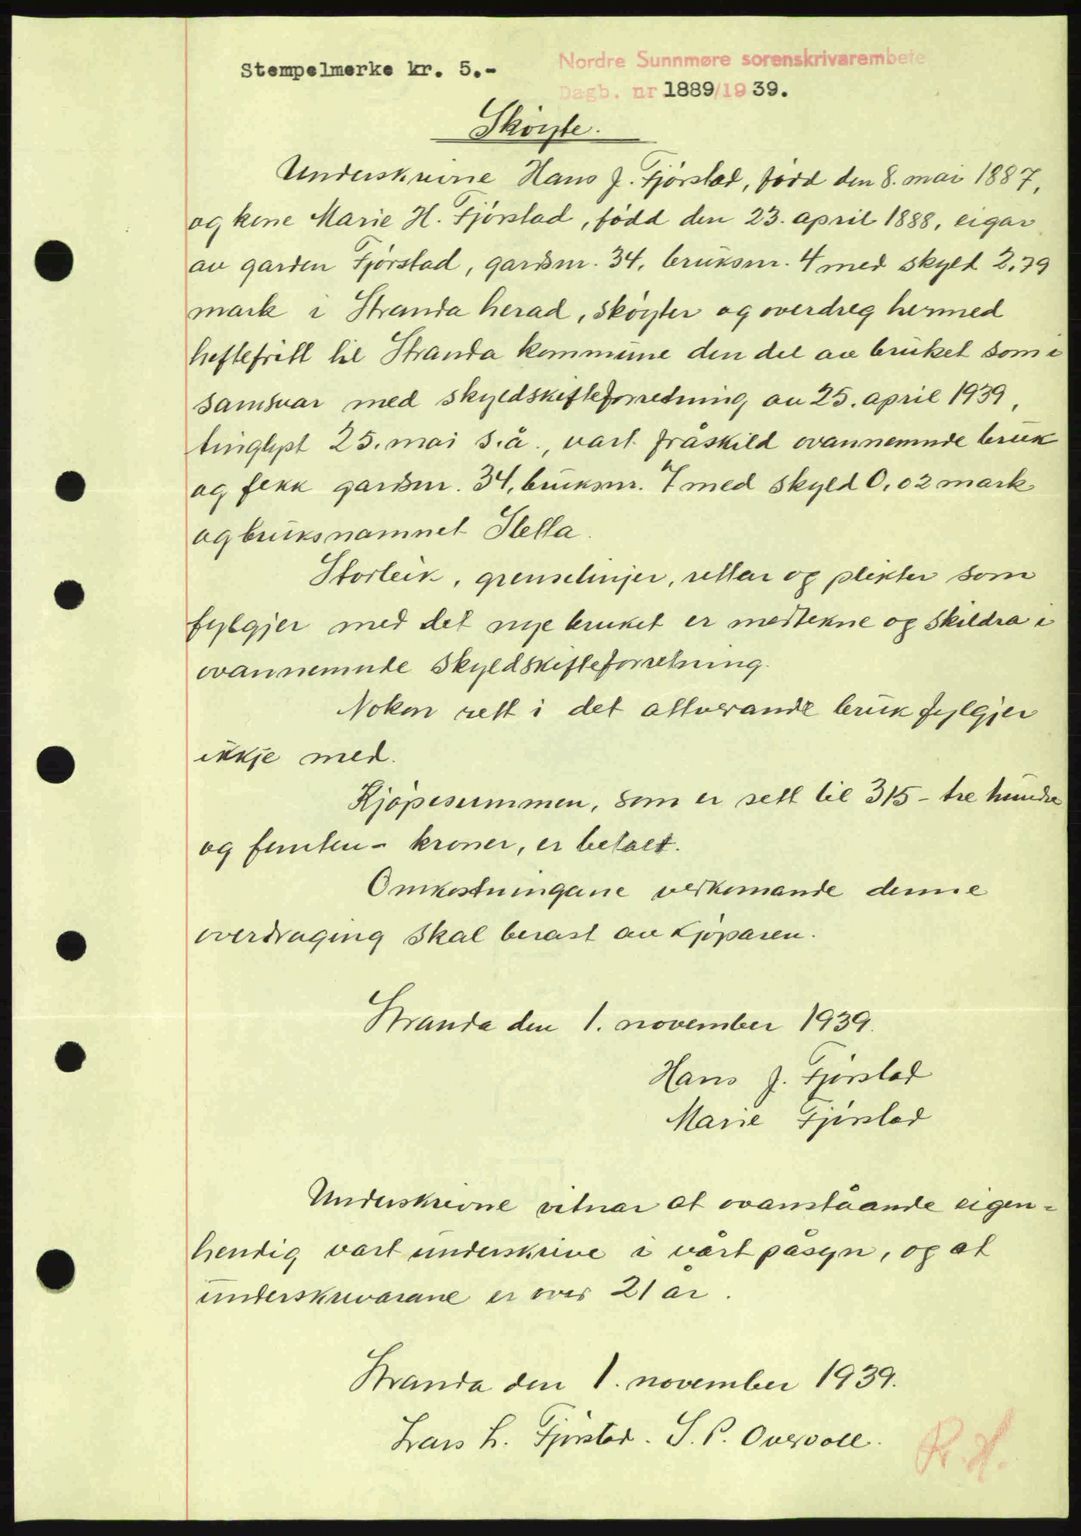 Stempelmerke kr. 5.-
Nordre Sunnmøre sorenskrivarembete
Dagb. nr 1889/1939.
Skøyte.
Underskrivne Hans J. Fjørstad, fødd den 8. mai 1887,
og kone Marie H. Fjørstad, fødd den 23. april 1888, eigar
av garden Fjørstad, gardsnr. 34, bruksnr. 4 med skyld 2,79
mark i Stranda herad, skøyter og overdreg hermed
heftefritt til Stranda kommune den del av bruket som i
samsvar med skyldskifteforretning av 25. april 1939,
tinglyst 25. mai s.å., vart fråskild ovannemnde bruk
og fekk gardsnr. 34, bruksnr. 7 med skyld 0,02 mark
og bruksnamnet Sletta.
Storleik, grenselinjer, rettar og plikter som
fylgjer med det nye bruket er medtekne og skildra i
ovannemnde skyldskifteforretning.
Nokon rett i det attverande bruk fylgjer
ikkje med.
Kjøpesummen, som er sett til 315 - tre hundre
og femten - kroner, er betalt.
Omkostningane vedkomande denne
overdraging skal berast av kjøparen.
Stranda den 1. november 1939.
Hans J. Fjørstad
Marie Fjørstad
Underskrivne vitnar at ovanståande eigen=
hendig vart underskrive i vårt påsyn, og at
underskrivarane er over 21 år.
Stranda den 1. november 1939.
Lars L. Fjørstad. S. P. Overvoll.
R. H.